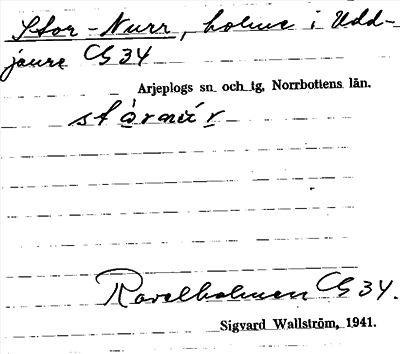 Stor-Nurr, holme i Udd-
jaure C5 34
Arjeplogs sn och tg, Norrbottens län.
Ravelholmen C5 34.
Sigvard Wallström, 1941.